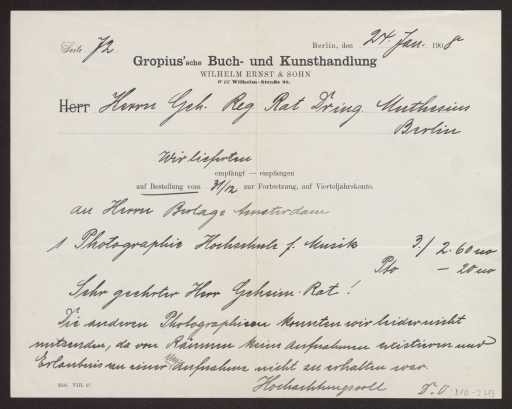 Seite 72
Berlin, den 24. Jan. 1908
Gropius'sche Buch- und Kunsthandlung
WILHELM ERNST & SOHN
W 66 Wilhelm-Straße 90.
Herr Herrn Geh. Reg Rat Dr ing Muthesius
Berlin
Wir lieferten
empfängt — empfingen
auf Bestellung vom 31/12 zur Fortsetzung, auf Vierteljahrskonto.
an Herrn Berlage Amsterdam
1 Photographie Hochschule f. Musik 3/ 2.60 no
Pto — 20 no
Sehr geehrter Herr Geheim-Rat!
Die anderen Photographieen konnten wir leider nicht
mitsenden, da von Räumen keine Aufnahmen existieren und
Erlaubnis zu einer neuen Aufnahme nicht zu erhalten war.
Hochachtungsvoll D. O.